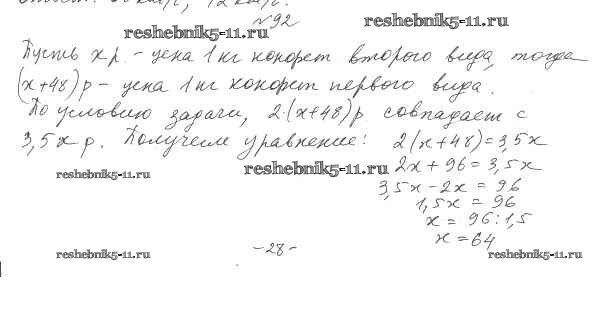 №92
reshebnik5-11.ru
reshebnik5-11.ru
Пусть х р. – цена 1 кг конфет второго вида, тогда
(х+48) р – цена 1 кг конфет первого вида.
По условию задачи, 2·(х+48) р совпадает с
3,5х р. Получаем уравнение: 2(х+48)=3,5х
reshebnik5-11.ru
reshebnik5-11.ru
2х + 96 = 3,5х
3,5х – 2х = 96
1,5х = 96
х = 96 : 1,5
х = 64
-28-
reshebnik5-11.ru
reshebnik5-11.ru